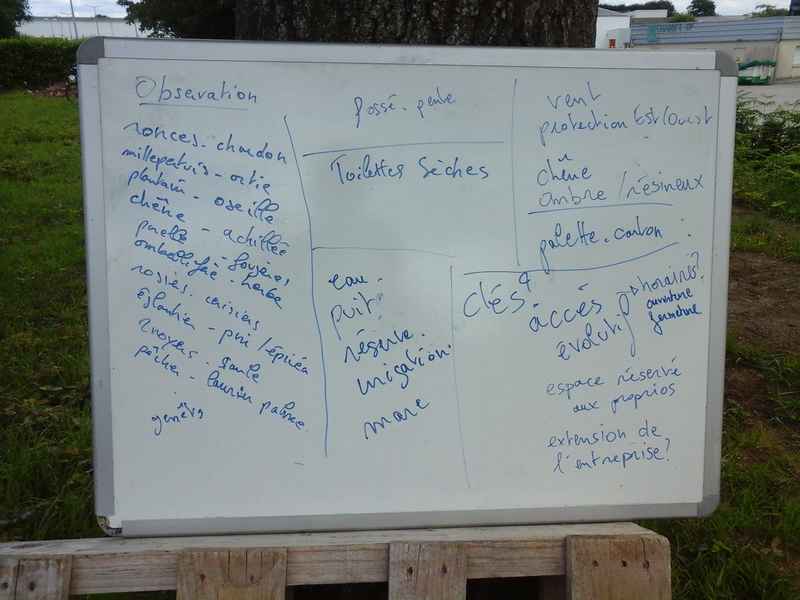 Observation
ronces - chardon
millepertuis - ortie
plantain - oseille
chêne - achillée
- fougères
ombellifée - herbe
rosiers - cerisiers
Églantier - pin / épicéa
noyers - saule
pêcher - laurier palme
genêts
fossé - pente
Toilettes Sèches
eau -
puit ?
réserve -
irrigation -
mare
vent
protection Est/Ouest
chêne
ombre / résineux
palette - carton
clés
accès
évolutif
horaires ?
ouverture
fermeture
espace réservé
aux proprios
extension de
l'entreprise ?